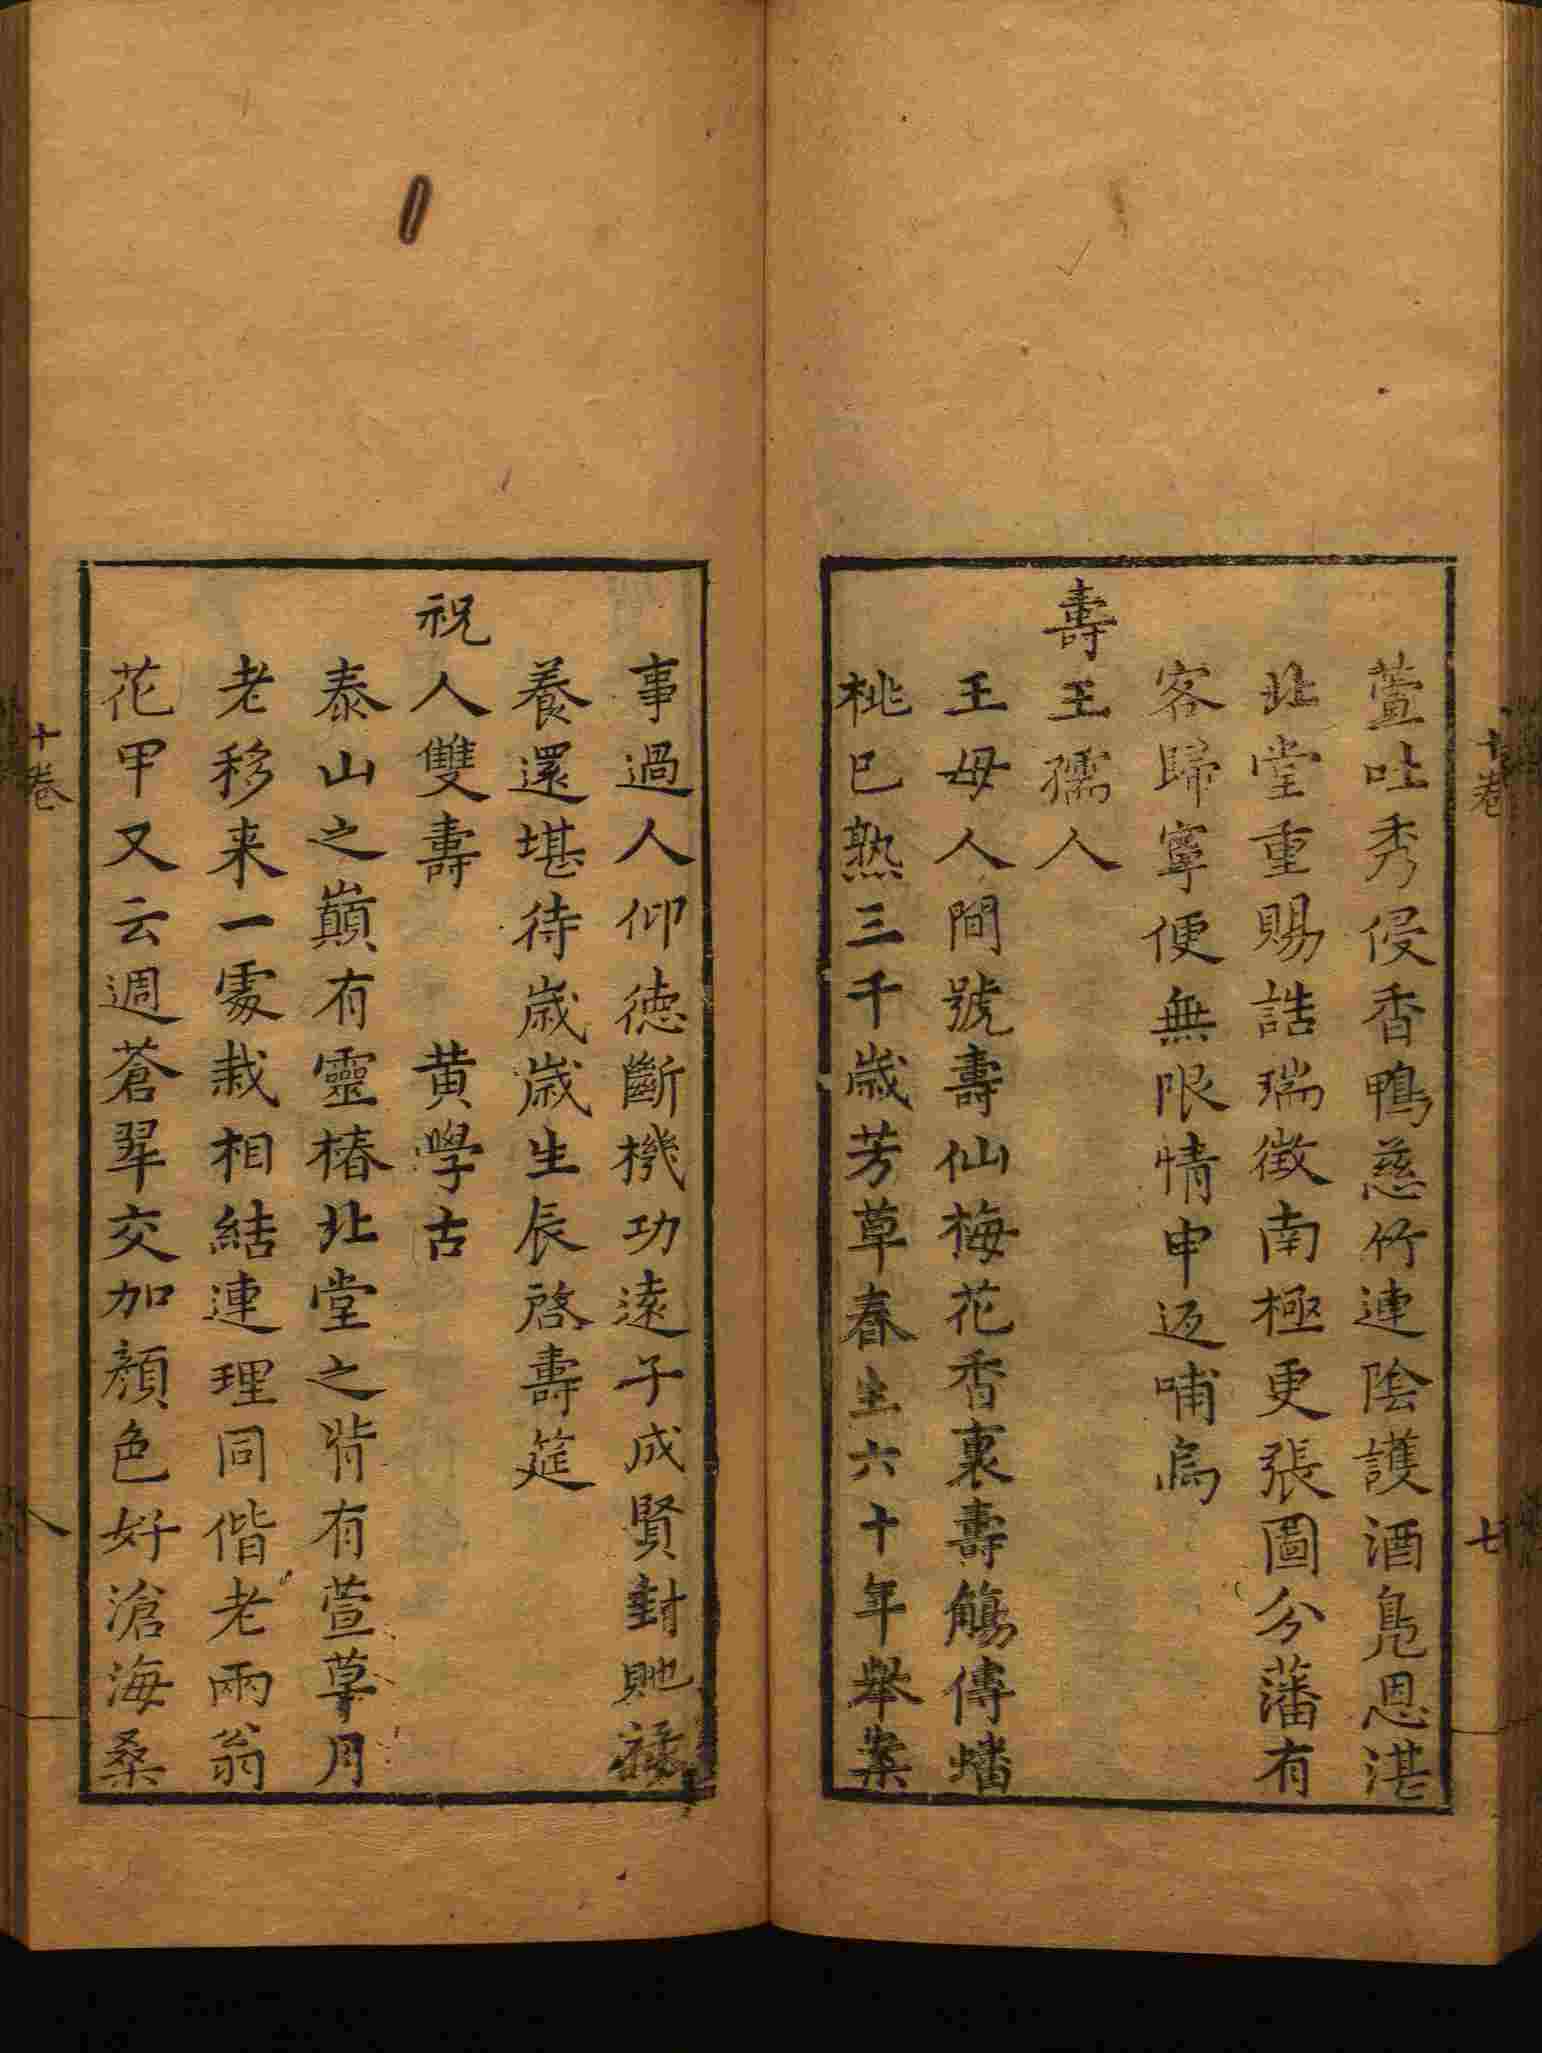 十卷
七
萱吐秀侵香鴨慈竹連陰護酒鳧恩湛
北堂重賜誥瑞徵南極更張圖分藩有
客歸寧便無限情申返哺烏
壽王孺人
王母人間號壽仙梅花香裏壽觴傳蟠
桃已熟三千歲芳草春生六十年舉案
事過人仰德斷機功遠子成賢封貤祿
養還堪待歲歲生辰啓壽筵
祝人雙壽 黄學古
泰山之巔有靈椿北堂之背有萱草月
老移来一處栽相結連理同偕老兩翁
花甲又云週蒼翠交加顏色好滄海桑
十卷
八